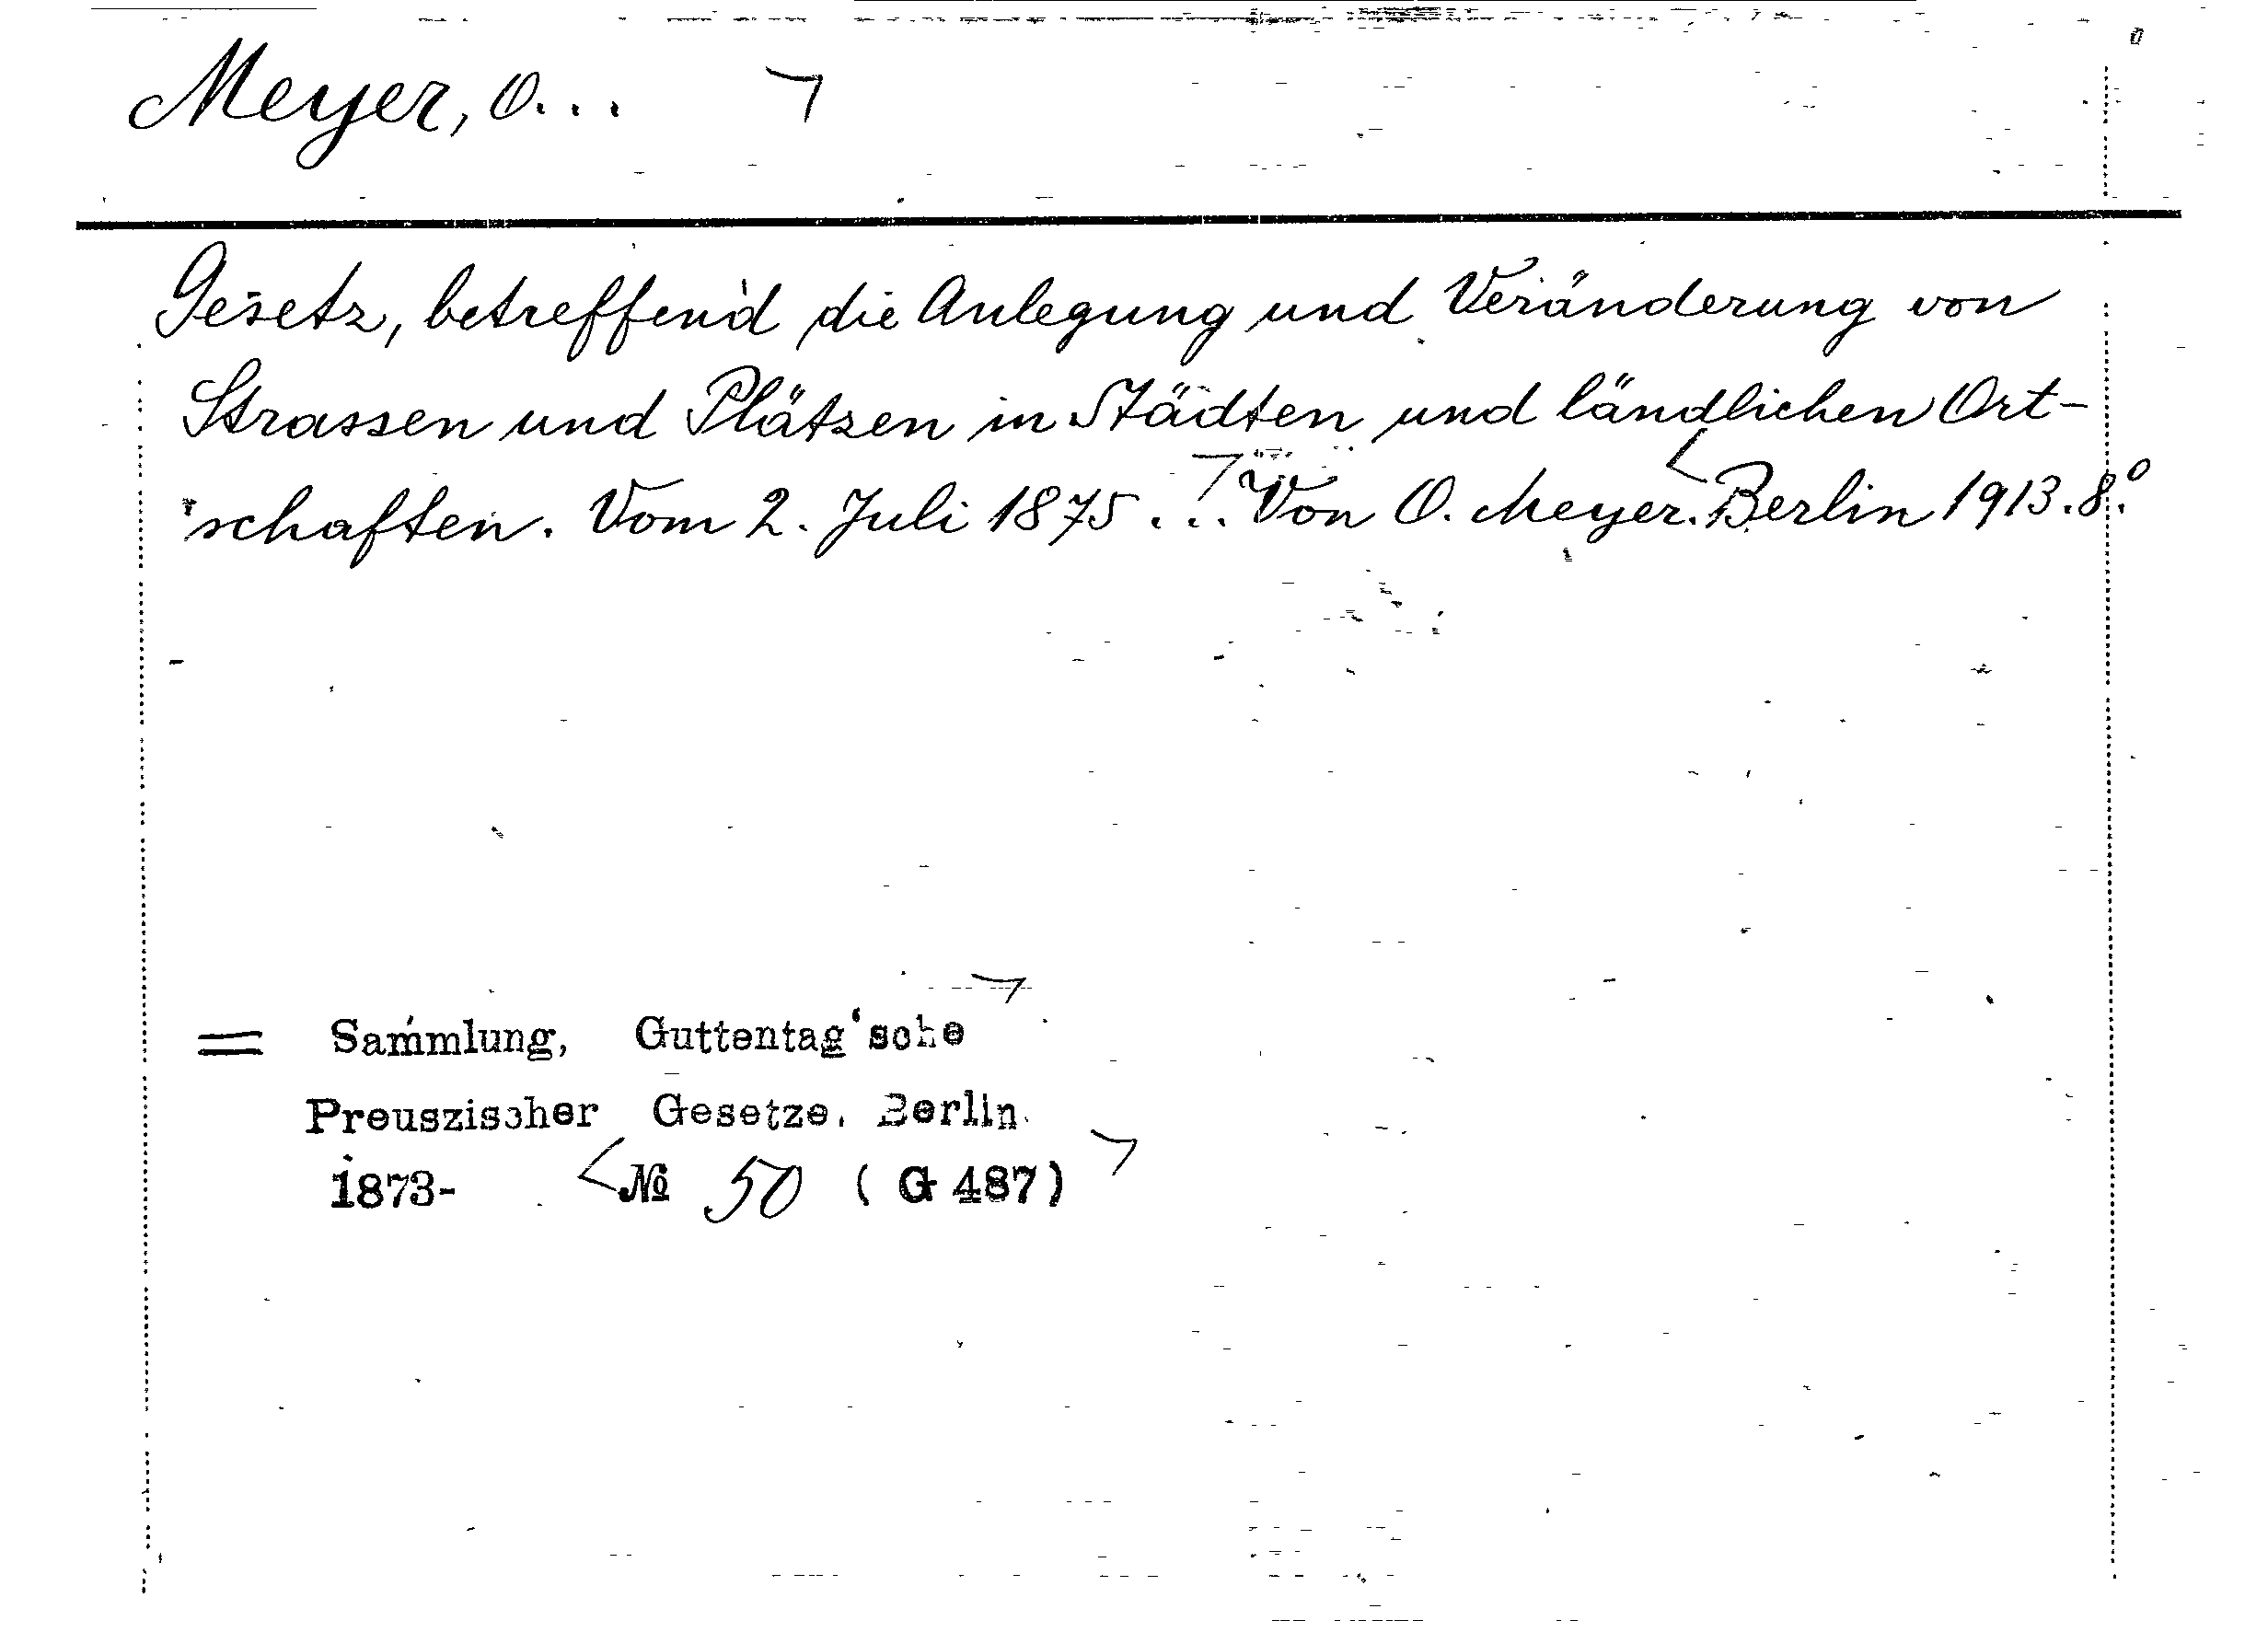 Meyer, O...
Gesetz, betreffend die Anlegung und Veränderung von
Strassen und Plätzen in Städten und ländlichen Ort-
schaften. Vom 2. Juli 1875... Von O. Meyer. Berlin 1913. 8.º
= Sammlung, Guttentag'sche
Preuszischer Gesetze. Berlin.
1873- № 50 (G 487)